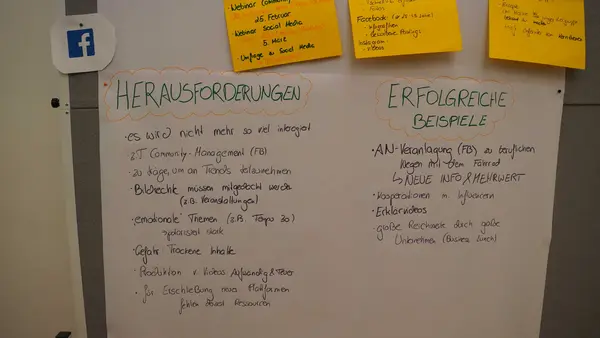 Webinar Community
25. Februar
Webinar Social Media
5. März
Umfage zu Social Media
Facebook
Instagram
- videos
HERAUSFORDERUNGEN
• es wird nicht mehr so viel interagiert
Community-Management (FB)
• zu träge, um an Trends teilzunehmen
• Bildrechte müssen mitgedacht werden
(z.B. Veranstaltungen)
• "emotionale" Themen (z.B. Tempo 30)
polarisiert stark
• Gefahr Trockene Inhalte
• Produktion v. Videos Aufwändig & teuer
• für Erschließung neuer Plattformen
fehlen Ressourcen
ERFOLGREICHE
BEISPIELE
• AN-Veranlagung (FB) zu beruflichen
Wegen mit dem Fahrrad
↳ NEUE INFO & MEHRWERT
• Kooperationen m. Influencern
• Erklärvideos
• große Reichweite durch große
Unternehmen (Business Lunch)